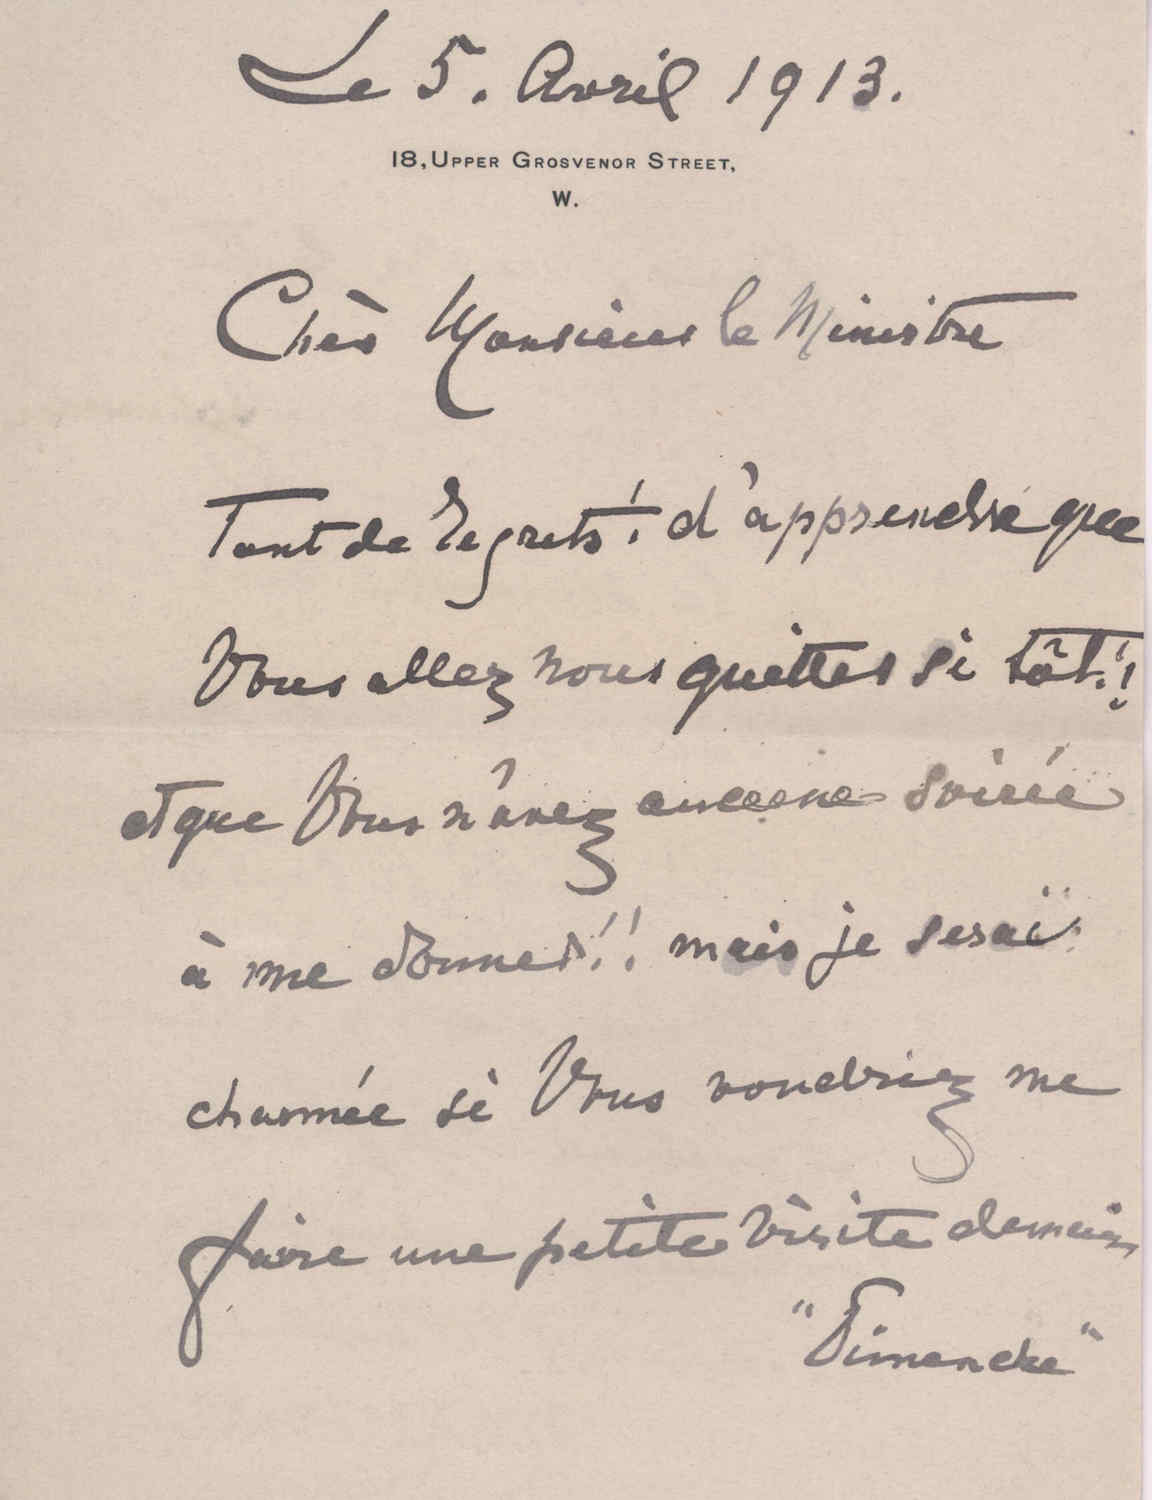 Le 5. Avril 1913.
18, Upper Grosvenor Street,
W.
Cher Monsieur le Ministre
Tant de regrets! d'apprendre que
Vous allez nous quitter si tôt!!
et que Vous n'avez aucune soirée
à me donner!! mais je serai
charmée si Vous voudriez me
faire une petite visite demain
"Dimanche"